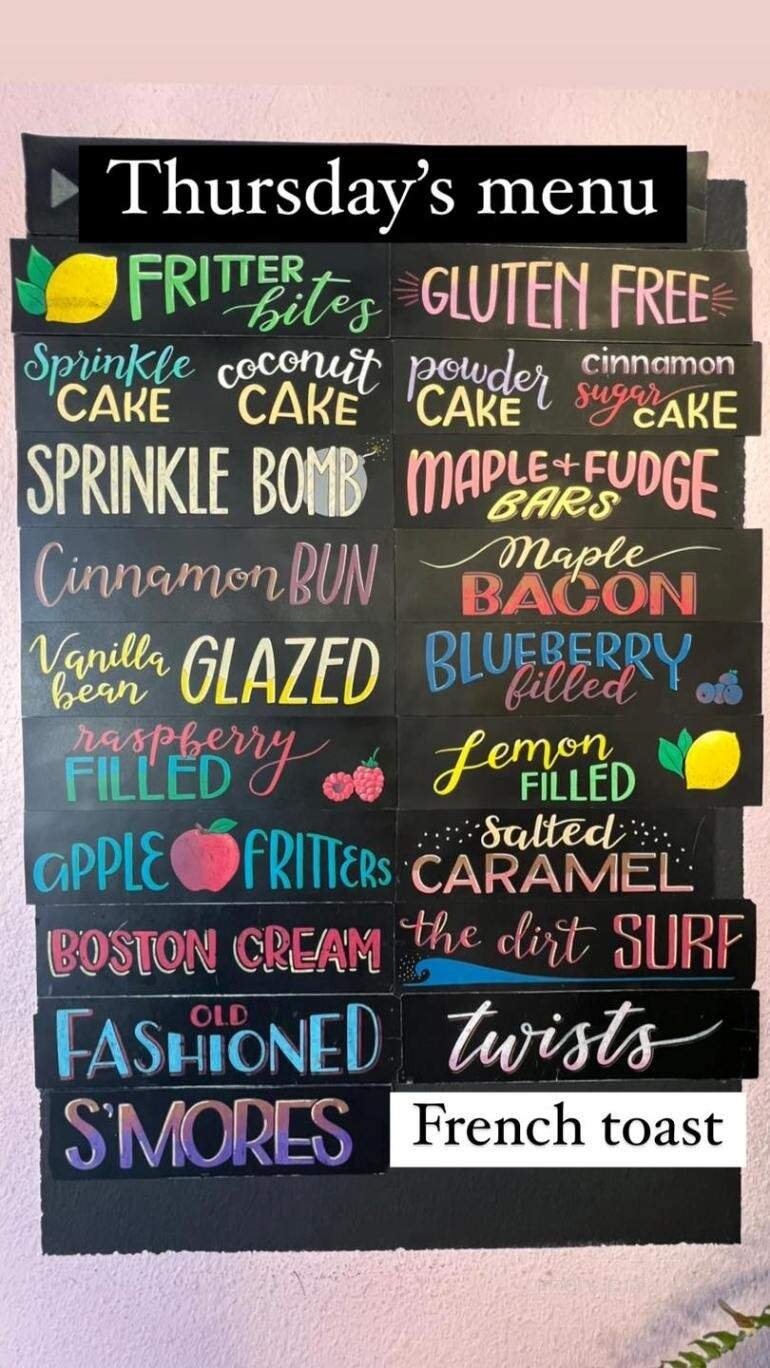 Thursday's menu
FRITTER bites
GLUTEN FREE
Sprinkle CAKE
coconut CAKE
powder CAKE
cinnamon sugar CAKE
SPRINKLE BOMB
MAPLE + FUDGE BARS
Cinnamon BUN
Maple BACON
Vanilla bean GLAZED
BLUEBERRY filled
raspberry FILLED
Lemon FILLED
APPLE FRITTERS
Salted CARAMEL
BOSTON CREAM
the dirt SURF
OLD FASHIONED
twists
S'MORES
French toast